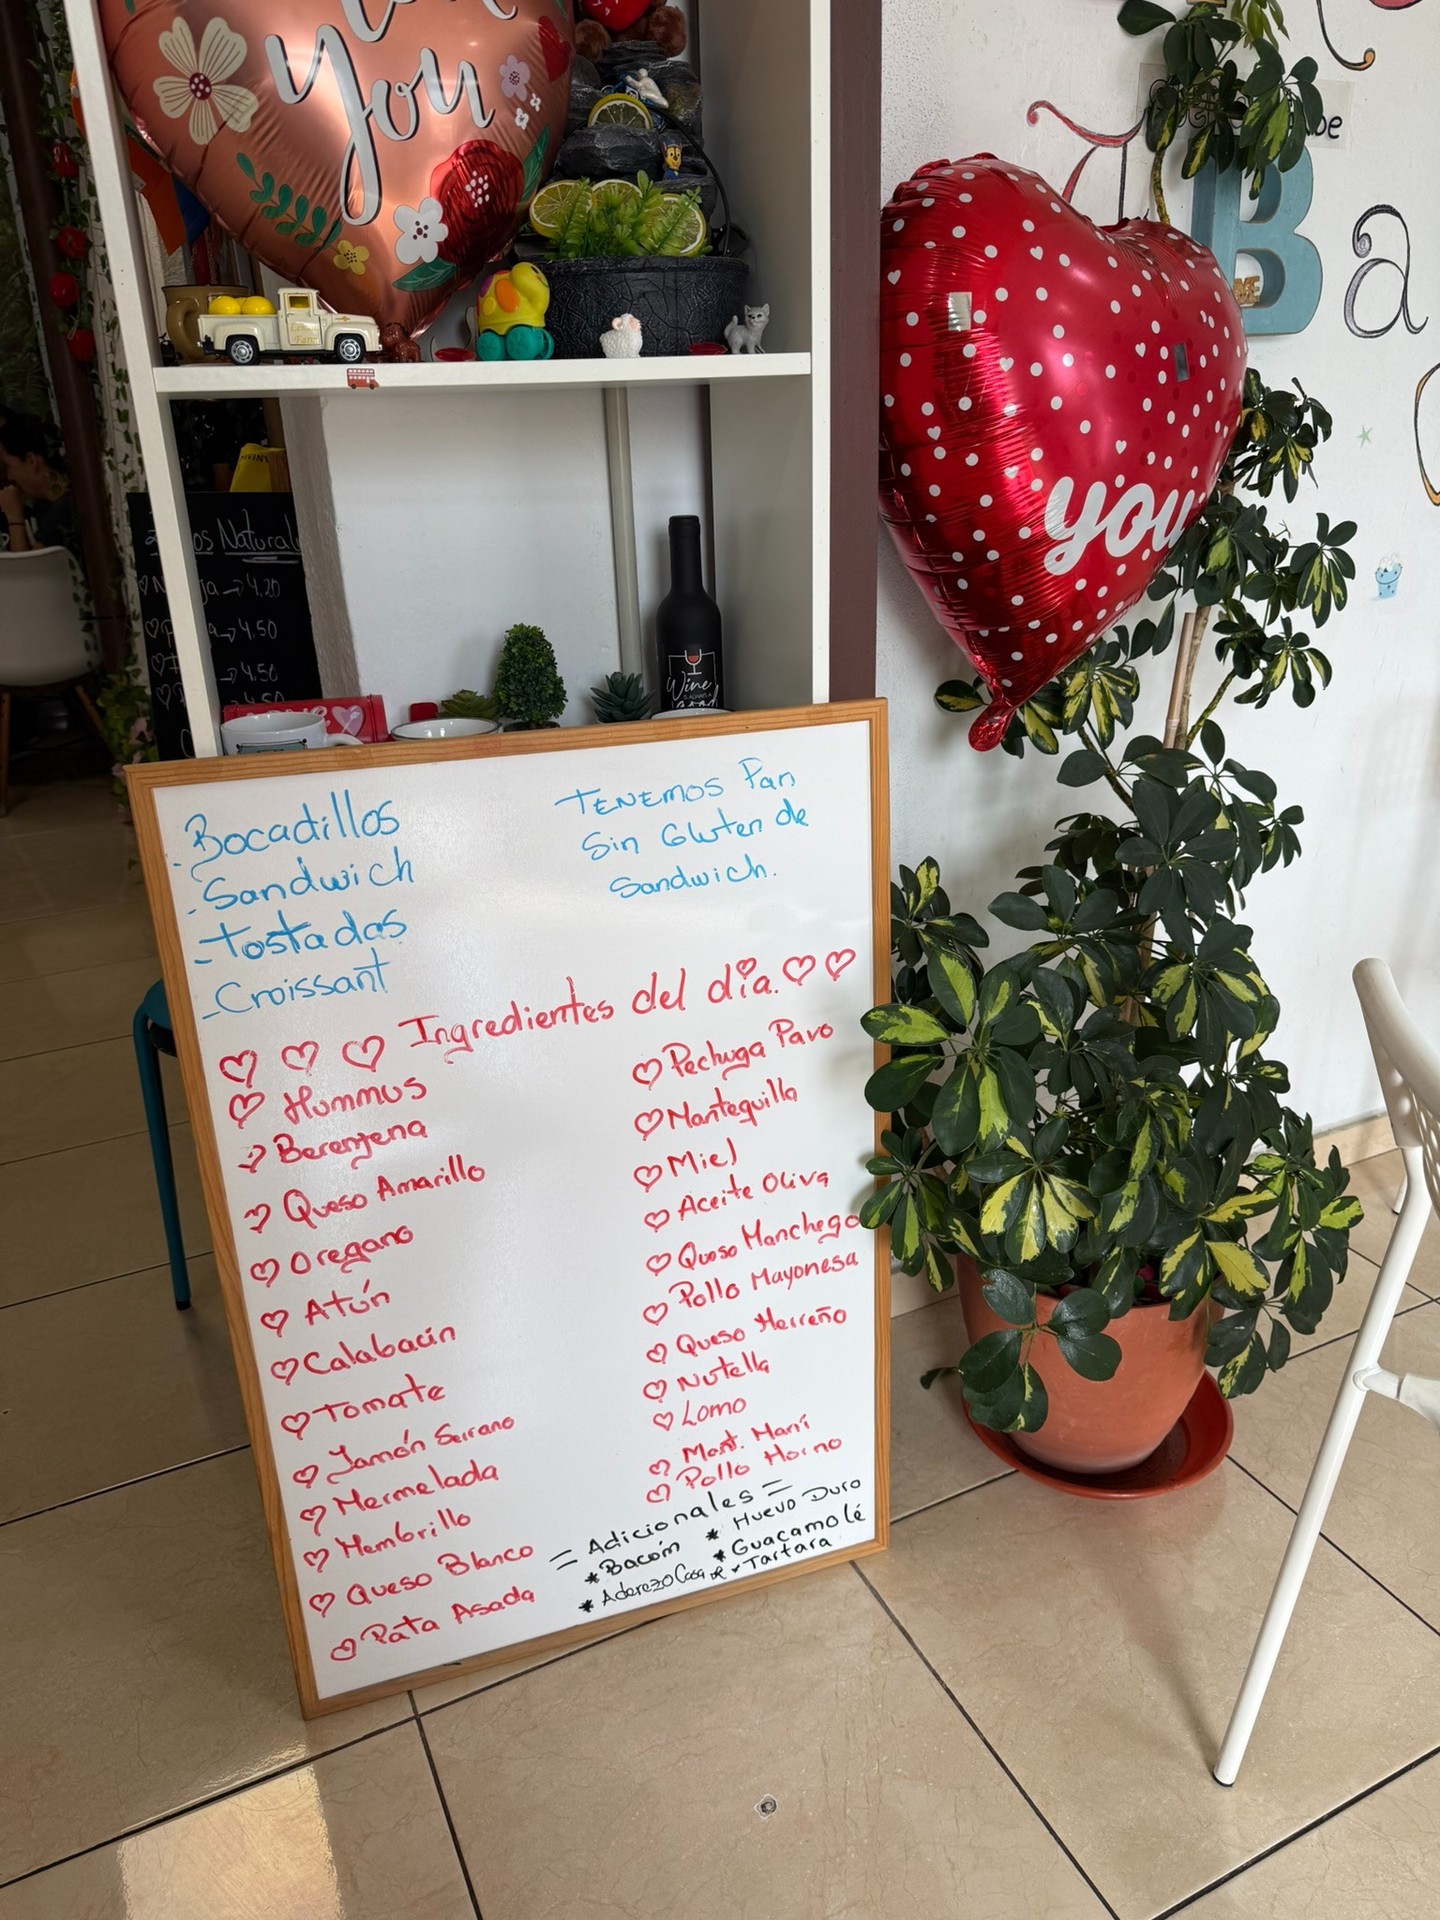 you
you
B
a
Natural
4.20
4.50
4.50
4.50
Wine
- Bocadillos
- Sandwich
- Tostadas
- Croissant
TENEMOS Pan
Sin Gluten de
Sandwich.
Ingredientes del día.
Hummus
Berenjena
Queso Amarillo
Oregano
Atún
Calabacín
Tomate
Jamón Serrano
Mermelada
Membrillo
Queso Blanco
Pata Asada
Pechuga Pavo
Mantequilla
Miel
Aceite Oliva
Queso Manchego
Pollo Mayonesa
Queso Herreño
Nutella
Lomo
Mant. Maní
Pollo Horno
= Adicionales =
* Bacom * Huevo Duro
* Aderezo Casa * Guacamolé
* Tartara